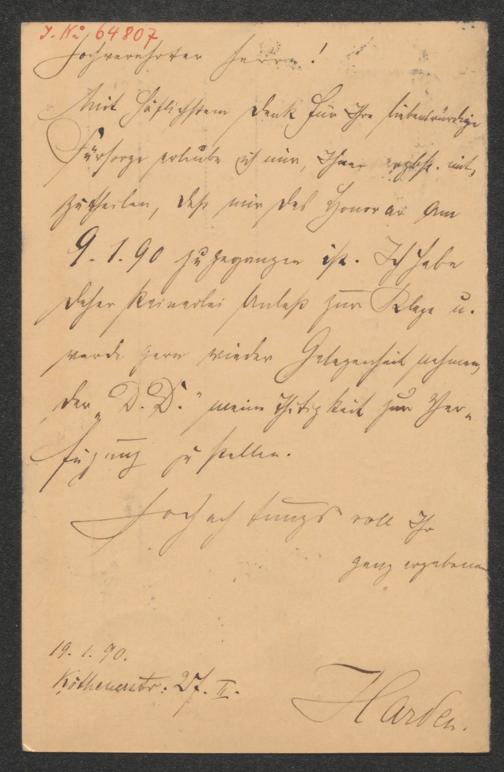 J. No 64807
Hochverehrter Herr!
Mit höflichstem Dank für Ihre liebenswürdige
Fürsorge erlaube ich mir, Ihnen ergebst. mit-
zutheilen, daß mir das Honorar am
9.1.90 zugegangen ist. Ich habe
daher keinerlei Anlaß zur Klage u.
werde gern wieder Gelegenheit nehmen,
der „D. D." meine Thätigkeit zur Ver-
fügung zu stellen.
Hochachtungsvoll Ihr
ganz ergebener
19.1.90.
Köthenerstr. 27. II.
Harden.